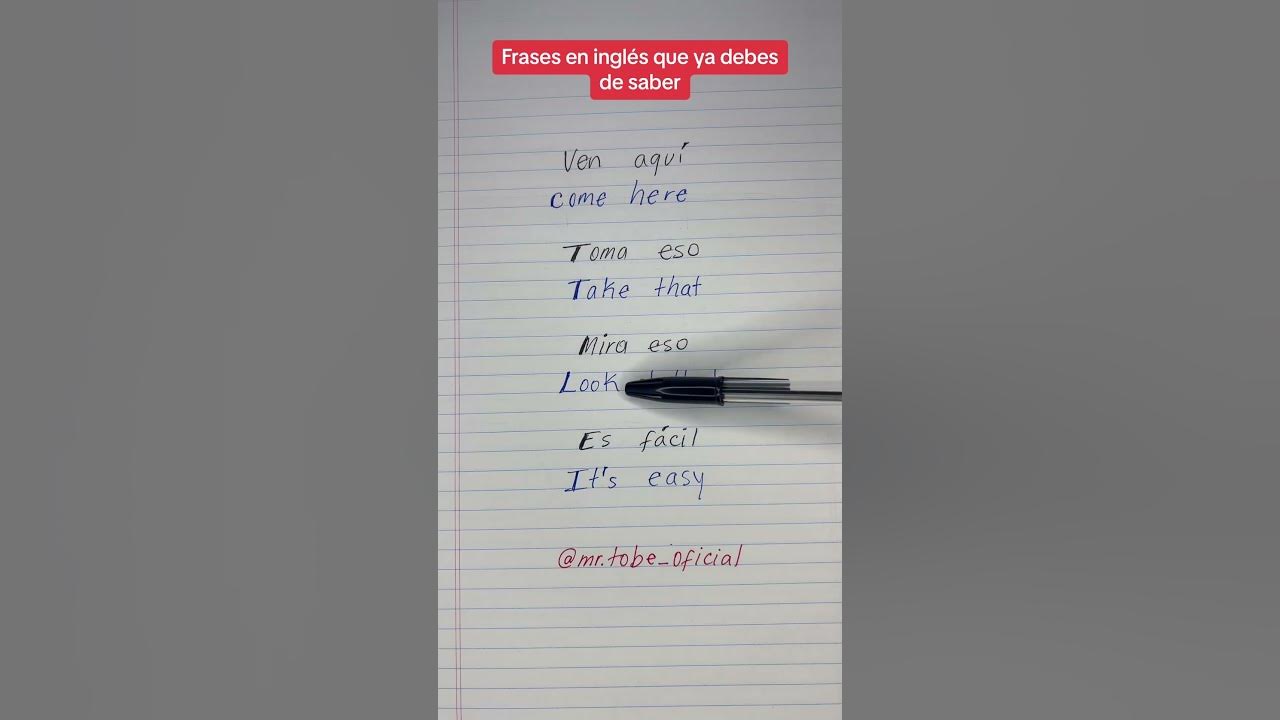 Frases en inglés que ya debes
de saber
Ven aquí
come here
Toma eso
Take that
Mira eso
Look
Es fácil
It's easy
@mr.tobe_oficial